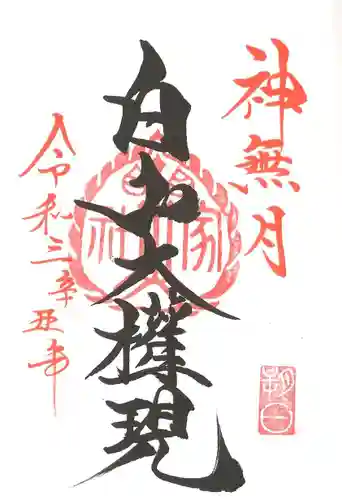 神無月
白山大権現
令和三辛丑年